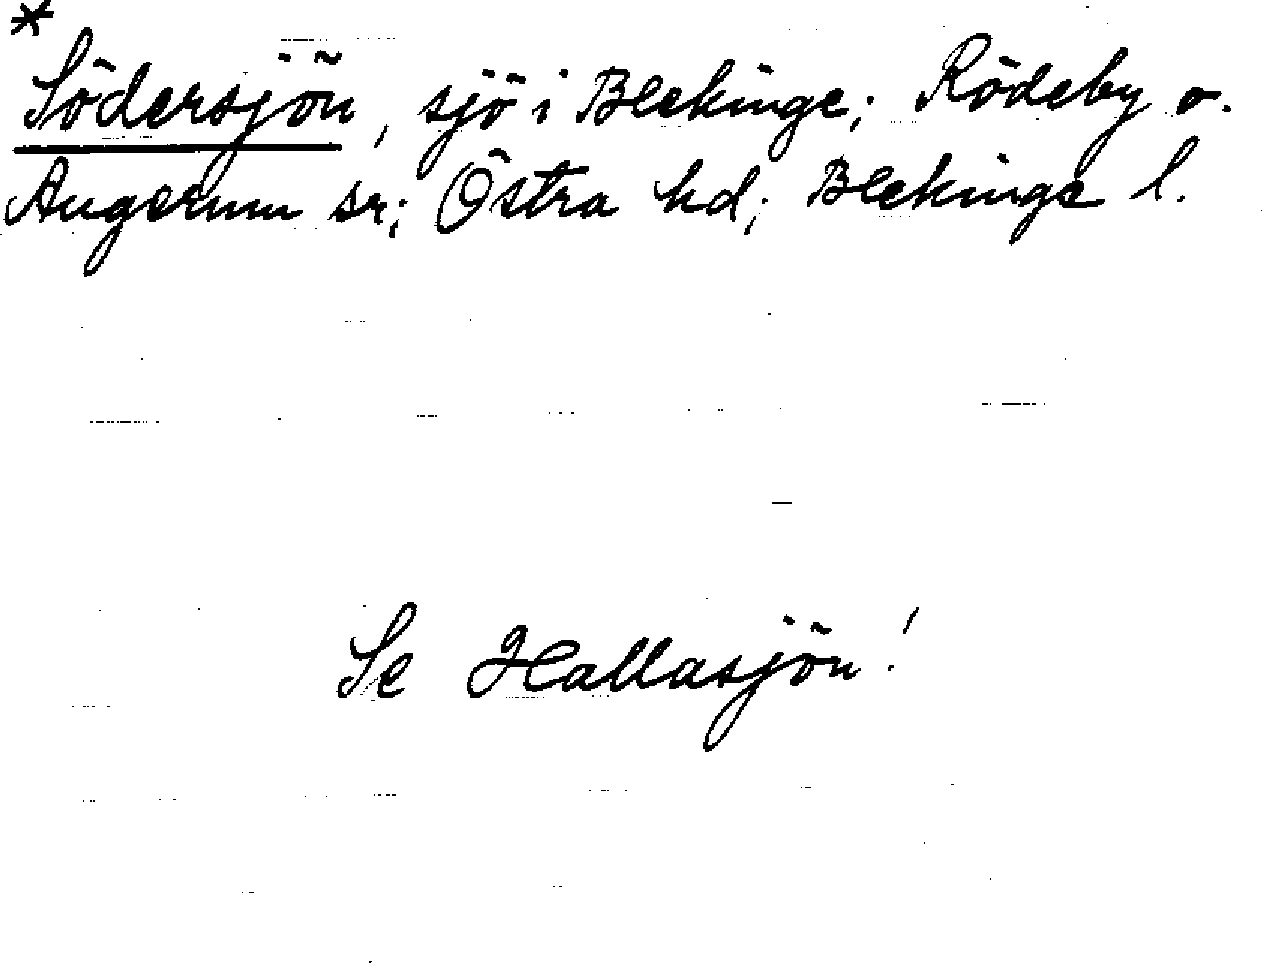 *
Södersjön, sjö i Blekinge; Rödeby o.
Augerum sr; Östra hd; Blekinge l.
Se Hallasjön!